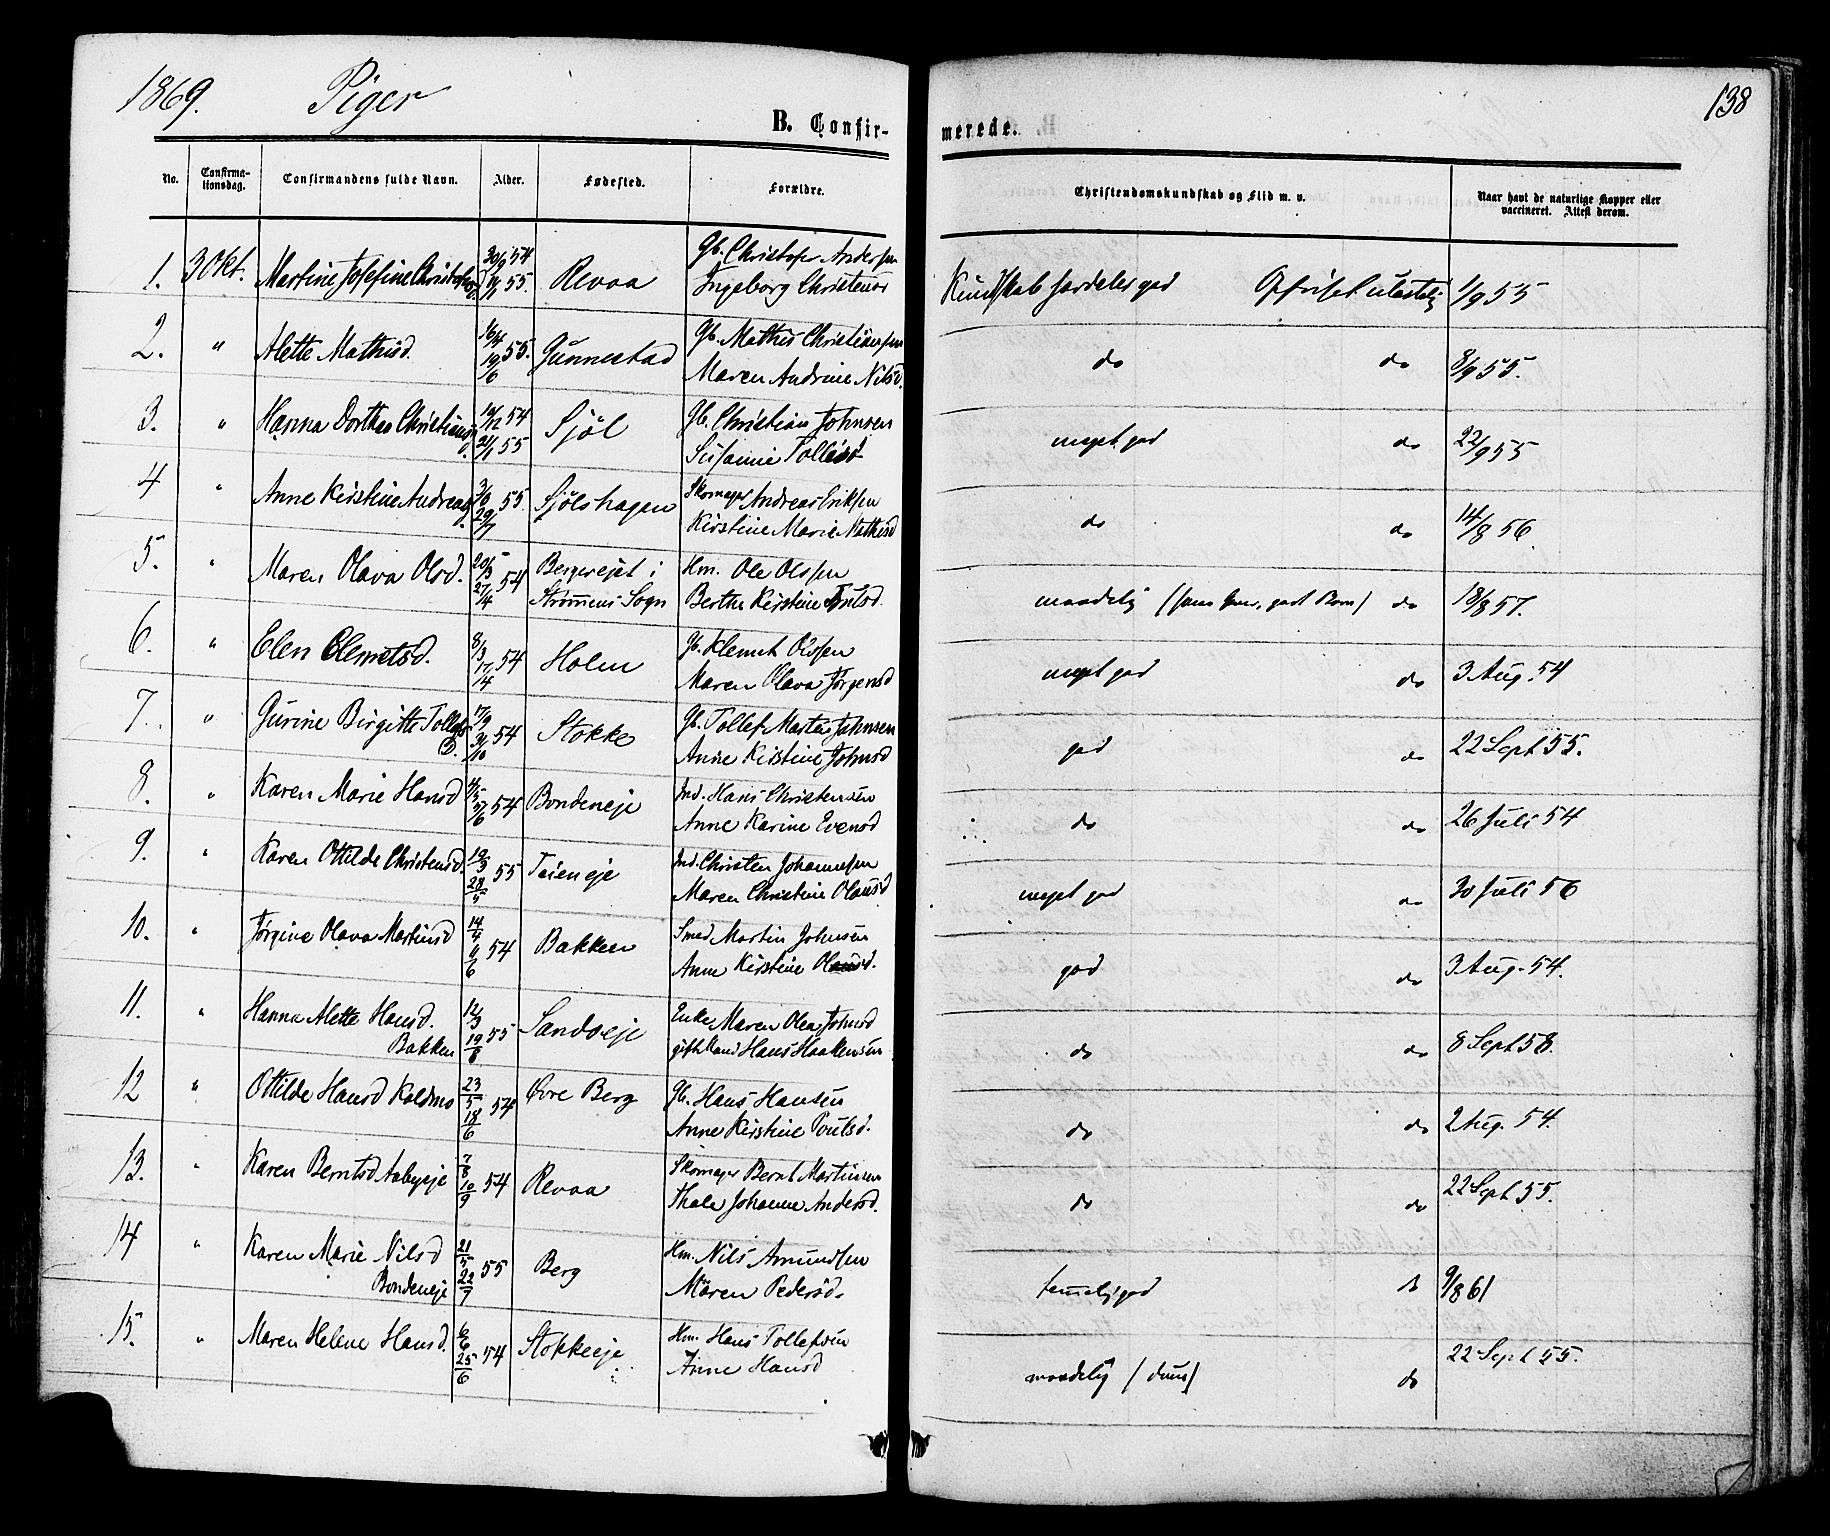 1869. Piger
138
B. Confir-
merede.
No.
Confirma-
tionsdag.
Confirmandens fulde Navn.
Alder.
Fødested.
Forældre.
Christendomskundskab og Flid m. v.
Naar havt de naturlige Kopper eller
vaccineret. Attest derom.
1. 3 Okt. Martine Josefine Christofersd. 30/9 54 Revaa Gb. Christofer Andersen
14/1 55. Ingeborg Christensd
Kundskab særdeles god Opførsel ulastelig 1/9 55
2. " Alette Mathisd. 16/4 55. Gunnestad Gb. Mathis Christiansen
19/6 Maren Andrine Nilsd.
do do 8/9 55.
3. " Hanna Dorthea Christiansd. 10/12 54 Sjøl Gb. Christian Johnsen
21/1 55 Susanne Tollefsd
meget god do 22/9 55
4 " Anne Kirstine Andreasd. 3/6 55. Sjølshagen Skomager Andreas Eriksen
29/7 Kirstine Marie Mathisd
do do 14/8 56.
5. " Maren Olava Olsd. 20/3 54 Bergerejet i Hm. Ole Olssen
27/4 Strømmens Sogn Berthe Kirstine
maadelig do 18/8 57.
6. " Elen Clemetsd. 8/3 54 Holm Gb. Klemet Olssen
17/4 Maren Olava Jørgensd
meget god do 3 Aug. 54
7. " Gurine Birgitte Tollefs 17/9 54 Stokke Gb. Tollef Martin Johnsen
D. 31/10 Anne Kirstine Johnsd
god do 22 Sept 55.
8. " Karen Marie Hansd 54 Bondeneje Ind. Hans Christensen
Anne Karine Evensd
do do 26 Juli 54
9. " Karen Ottilde Christensd. 19/3 55 Teieneje Ind. Christen Johannesen
28/5 Maren Christine Olausd
meget god do 30 Juli 56
10. " Jørgine Olava Martinsd 14/4 54 Bakken Smed Martin Johnsen
6/6 Anne Kirstine
god do 3 Aug. 54.
11. " Hanna Alette Hansd. 12/3 55 Sandseje Enke Maren Olea Johnsd
Bakken 19/8 gift Mand Hans Haakensen
do do 8 Sept 58.
12 " Ottilde Hansd Koldmo 23/5 54 Øvre Berg Gb. Hans Hansen
18/6 Anne Kirstine Poulsd.
do do 2 Aug. 54.
13. " Karen Berntsd Aabyeje 7/8 54 Revaa Skomager Bernt Martinsen
10/9 Thale Johanne Andersd.
do do 22 Sept 55.
14 " Karen Marie Nilsd 21/5 55 Berg Hm. Nils Amundsen
Bondeneje 22/7 Maren Pedersd.
temelig god do 9/8 61
15. " Maren Helene Hansd. 6/6 54 Stokkeeje Hm. Hans Tollefsen
25/6 Anne Hansd
maadelig (dum) do 22 Sept 55.